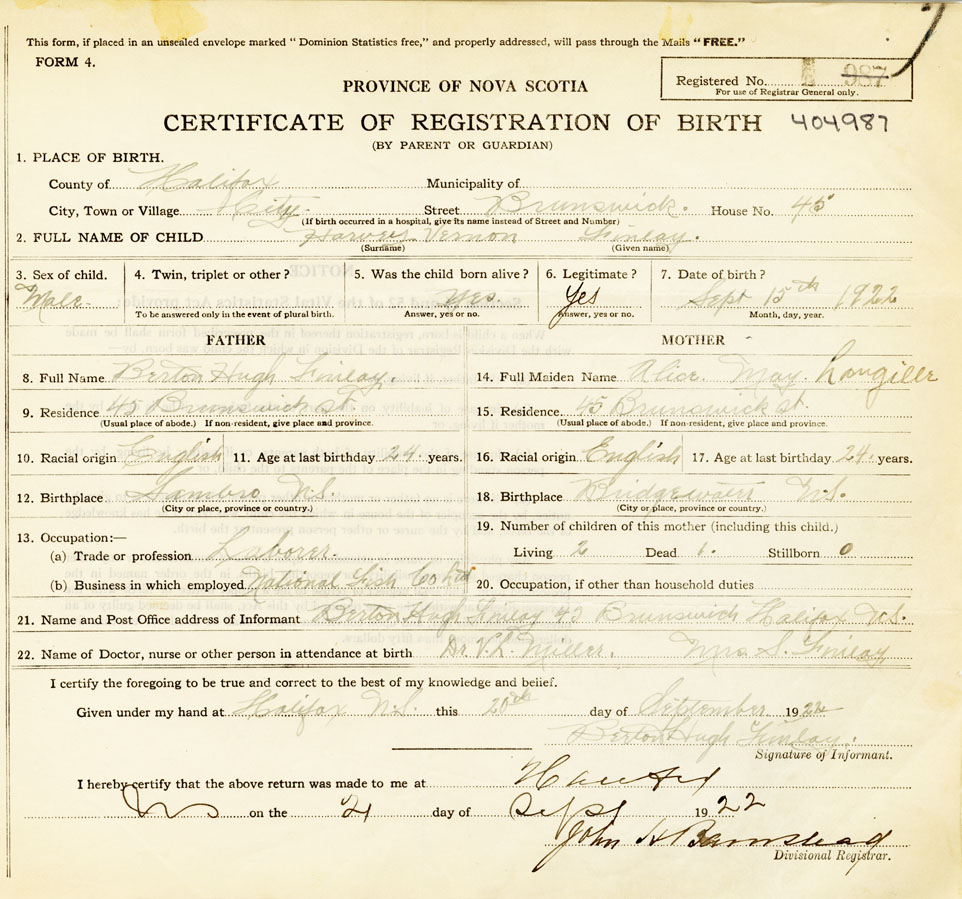 This form, if placed in an unsealed envelope marked “ Dominion Statistics free,” and properly addressed, will pass through the Mails “FREE.”
FORM 4.
Registered No. 987
For use of Registrar General only.
PROVINCE OF NOVA SCOTIA
CERTIFICATE OF REGISTRATION OF BIRTH 404987
(BY PARENT OR GUARDIAN)
1. PLACE OF BIRTH.
County of Halifax Municipality of
City, Town or Village City. Street Brunswick. House No. 45
(If birth occurred in a hospital, give its name instead of Street and Number)
2. FULL NAME OF CHILD Harvey Vernon Finlay.
(Surname) (Given name)
3. Sex of child. 4. Twin, triplet or other? 5. Was the child born alive? 6. Legitimate? 7. Date of birth?
Male. yes. Yes Sept 15th 1922
To be answered only in the event of plural birth. Answer, yes or no. Answer, yes or no. Month, day, year.
FATHER MOTHER
8. Full Name Berton Hugh Finlay. 14. Full Maiden Name Alice. May. Langille
9. Residence 45 Brunswick st. 15. Residence. 45 Brunswick st.
(Usual place of abode.) If non-resident, give place and province. (Usual place of abode.) If non-resident, give place and province.
10. Racial origin English 11. Age at last birthday 24. years. 16. Racial origin English 17. Age at last birthday 24. years.
12. Birthplace Sambro N.S. 18. Birthplace Bridgewater N.S.
(City or place, province or country.) (City or place, province or country.)
13. Occupation:— 19. Number of children of this mother (including this child.)
(a) Trade or profession Laborer. Living 2 Dead 1. Stillborn 0
(b) Business in which employed National Fish Co Ltd 20. Occupation, if other than household duties
21. Name and Post Office address of Informant Berton Hugh Finlay 45 Brunswick Halifax N.S.
22. Name of Doctor, nurse or other person in attendance at birth Dr. V. L. Miller. Mrs S. Finlay
I certify the foregoing to be true and correct to the best of my knowledge and belief.
Given under my hand at Halifax N.S. this 20th day of September 1922
Berton Hugh Finlay.
Signature of Informant.
I hereby certify that the above return was made to me at Halifax
NS on the 21 day of Sept 1922
John H Barnstead
Divisional Registrar.